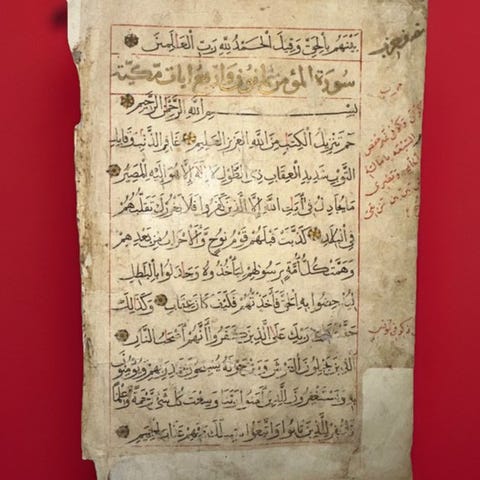 بينهم بالحق وقيل الحمد لله رب العالمين
سورة المؤمن ثمانون واربع ايات مكية
بسم الله الرحمن الرحيم
حم تنزيل الكتب من الله العزيز العليم غافر الذنب وقابل
التوب شديد العقاب ذي الطول لا اله الا هو اليه المصير
ما يجادل في ايات الله الا الذين كفروا فلا يغررك تقلبهم
في البلاد كذبت قبلهم قوم نوح والاحزاب من بعدهم
وهمت كل امة برسولهم لياخذوه وجادلوا بالباطل
ليدحضوا به الحق فاخذتهم فكيف كان عقاب وكذلك
حقت كلمت ربك على الذين كفروا انهم اصحاب النار
الذين يحملون العرش ومن حوله يسبحون بحمد ربهم ويؤمنون
به ويستغفرون للذين امنوا ربنا وسعت كل شئ رحمة وعلما
فاغفر للذين تابوا واتبعوا سبيلك وقهم عذاب الجحيم